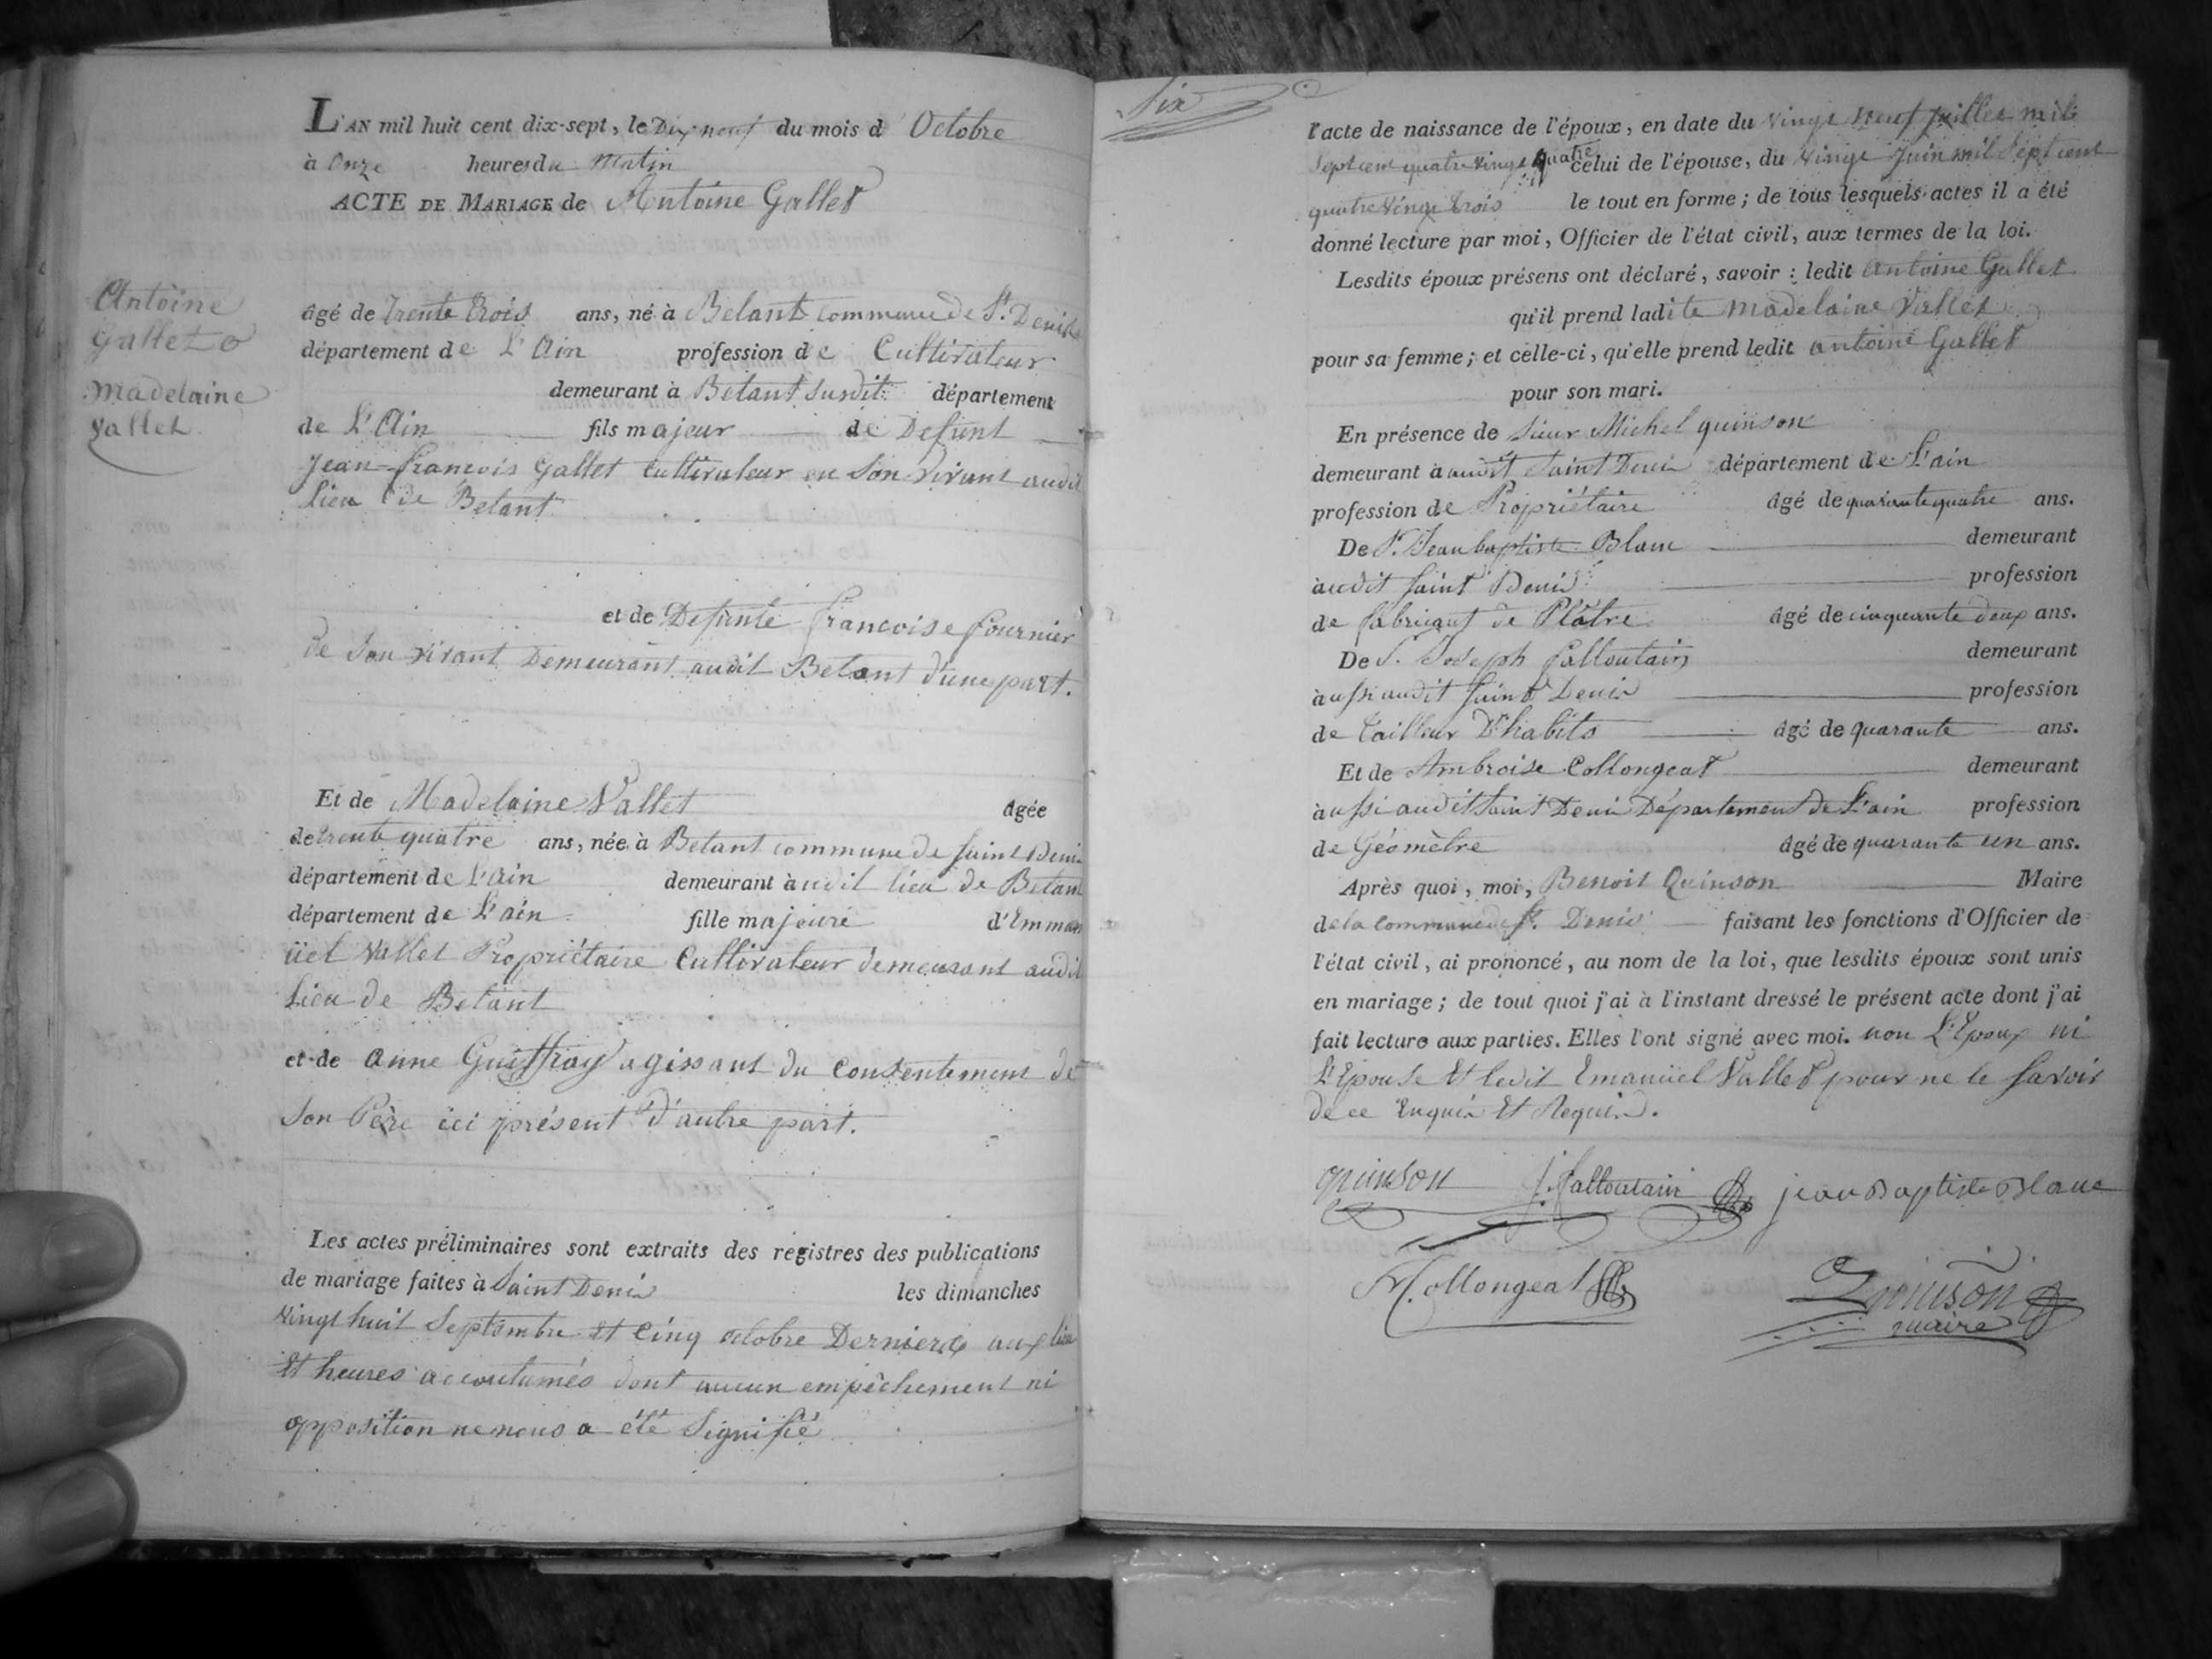 L'AN mil huit cent dix-sept, le Dix neuf du mois d' Octobre
à Onze heures du matin
ACTE DE MARIAGE de Antoine Gallet
Antoine
Gallet &
Madelaine
Vallet
âgé de trente trois ans, né à Betant commune de St. Denis
département de L'Ain profession de Cultivateur
demeurant à Betant susdit département
de L'Ain fils majeur de Defunt
Jean francois Gallet Cultivateur en Son vivant audit
Lieu de Betant
et de Defunte francoise fournier
de Son vivant Demeurant audit Betant d'une part.
Et de Madelaine Vallet âgée
de trente quatre ans, née à Betant commune de Saint Denis
département de L'ain demeurant audit lieu de Betant
département de L'ain fille majeure d'Emman
üel Vallet Propriétaire Cultivateur demeurant audit
Lieu de Betant
et de Anne Guiffray agissant du Consentement de
Son Père ici présent d'autre part.
Les actes préliminaires sont extraits des registres des publications
de mariage faites à Saint Denis les dimanches
vingt huit Septembre Et Cinq octobre Derniers aux lieu
Et heures accoutumés dont aucun empêchement ni
opposition ne nous a été Signifié
Six
l'acte de naissance de l'époux, en date du vingt neuf juillet mil
Sept cent quatre vingt quatre celui de l'épouse, du vingt Juin mil Sept cent
quatre vingt trois le tout en forme; de tous lesquels actes il a été
donné lecture par moi, Officier de l'état civil, aux termes de la loi.
Lesdits époux présens ont déclaré, savoir : ledit Antoine Gallet
qu'il prend ladite Madelaine Vallet
pour sa femme; et celle-ci, qu'elle prend ledit antoine Gallet
pour son mari.
En présence de Sieur Michel quinson
demeurant à audit Saint Denis département de L'ain
profession de Propriétaire âgé de quarante quatre ans.
De S. Jean baptiste Blanc demeurant
audit Saint Denis profession
de fabricant de Plâtre âgé de cinquante deux ans.
De S. Joseph Palloutain demeurant
aussi audit Saint Denis profession
de Tailleur D'habits âgé de quarante ans.
Et de Ambroise Collongeat demeurant
aussi audit Saint Denis Département de L'ain profession
de Géomètre âgé de quarante un ans.
Après quoi, moi, Benoit Quinson Maire
de la Commune de St. Denis faisant les fonctions d'Officier de
l'état civil, ai prononcé, au nom de la loi, que lesdits époux sont unis
en mariage; de tout quoi j'ai à l'instant dressé le présent acte dont j'ai
fait lecture aux parties. Elles l'ont signé avec moi. non L'Epoux ni
L'Epouse Et ledit Emanüel Vallet pour ne le Savoir
de ce Enquis Et Requis.
quinson J. Palloutain jean Baptiste Blanc
Collongeat Quinson
maire